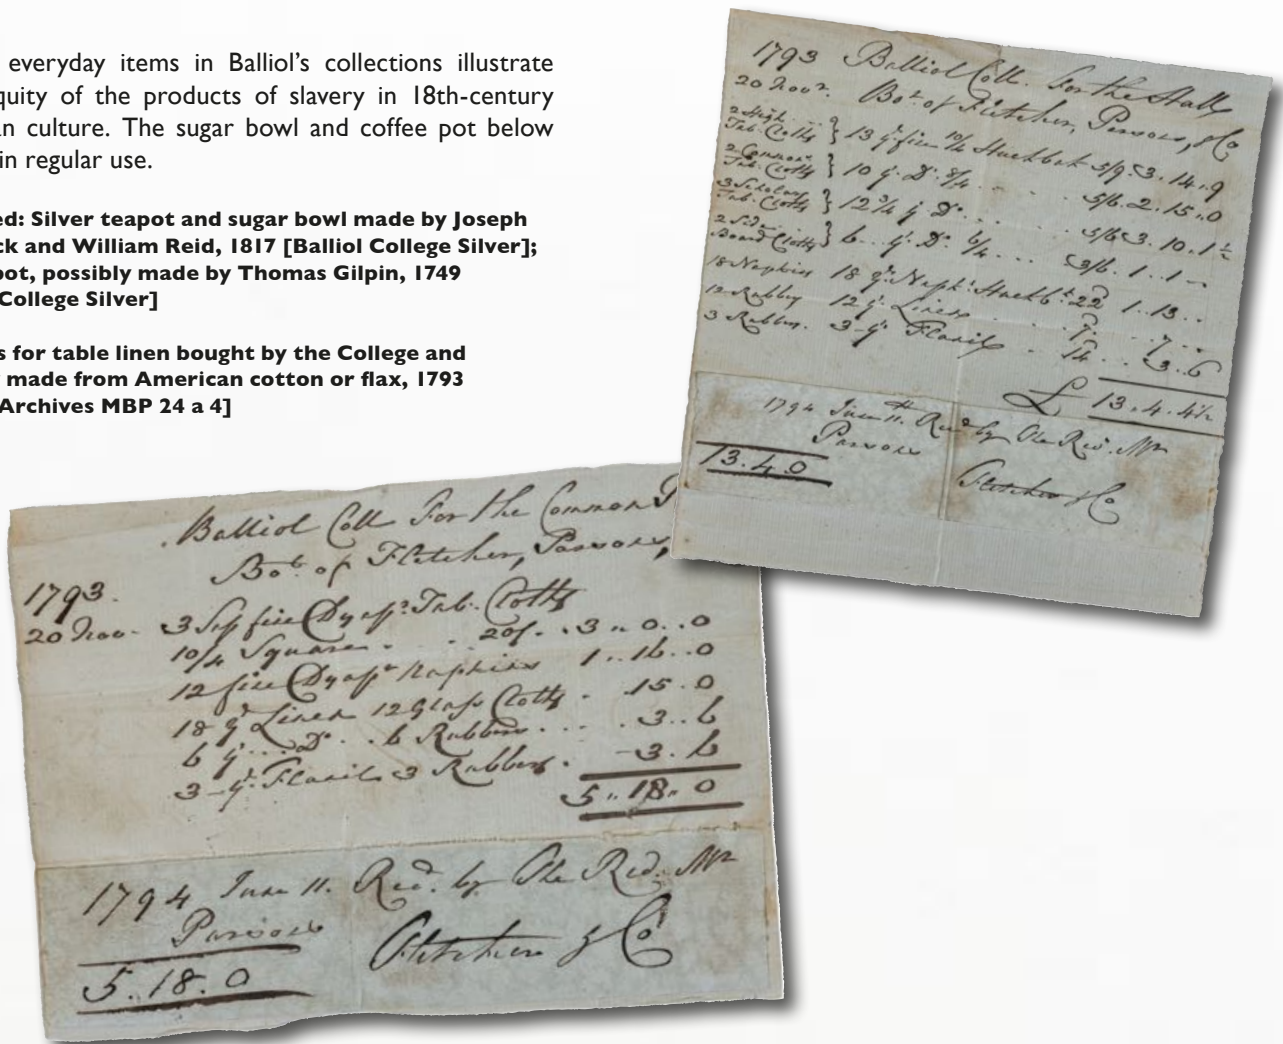 everyday items in Balliol’s collections illustrate
quity of the products of slavery in 18th-century
an culture. The sugar bowl and coffee pot below
in regular use.
ed: Silver teapot and sugar bowl made by Joseph
ck and William Reid, 1817 [Balliol College Silver];
pot, possibly made by Thomas Gilpin, 1749
College Silver]
s for table linen bought by the College and
made from American cotton or flax, 1793
Archives MBP 24 a 4]
1793 Balliol Coll. For the Hall
20 Novr. Bot. of Fletcher, Parsons, & Co
2 High Tab. Cloths } 13 yd. fine 10/4 Huckbak 5/9 3.14.9
2 Common Tab. Cloths } 10 y. Do. 8/4 5/6. 2.15.0
3 Scholars Tab. Cloths } 12 3/4 y Do. 5/6 3.10.1½
2 Side Board Cloths } 6 y. Do. 6/4 3/6. 1..1 -
18 Napkins 18 yd. Napk. Huckbk. 22 1..13 ..
12 Rubbers 12 y. Linen 7. 7 ..
3 Rubbers. 3 - y. 14 3..6
£ 13.4.4½
1794 June 11. Recd by the Revd. Mr
Parsons
13.4.0 Fletcher & Co
Balliol Coll For the Common
Bot. of Fletcher, Parsons,
1793.
20 Nov. 3 Sup fine Dyapr. Tab. Cloths
10/4 Square . . . 20/. . 3 " 0..0
12 fine Dyapr Napkins 1..16..0
18 yd Linen 12 Glass Cloths . .15.0
6 y... Do.. 6 Rubbers . . . . 3..6
3 - y. 3 Rubbers . - 3.6
5 " 18 " 0
1794 June 11. Recd. by the Revd. Mr
Parsons
5..18.0 Fletcher & Co